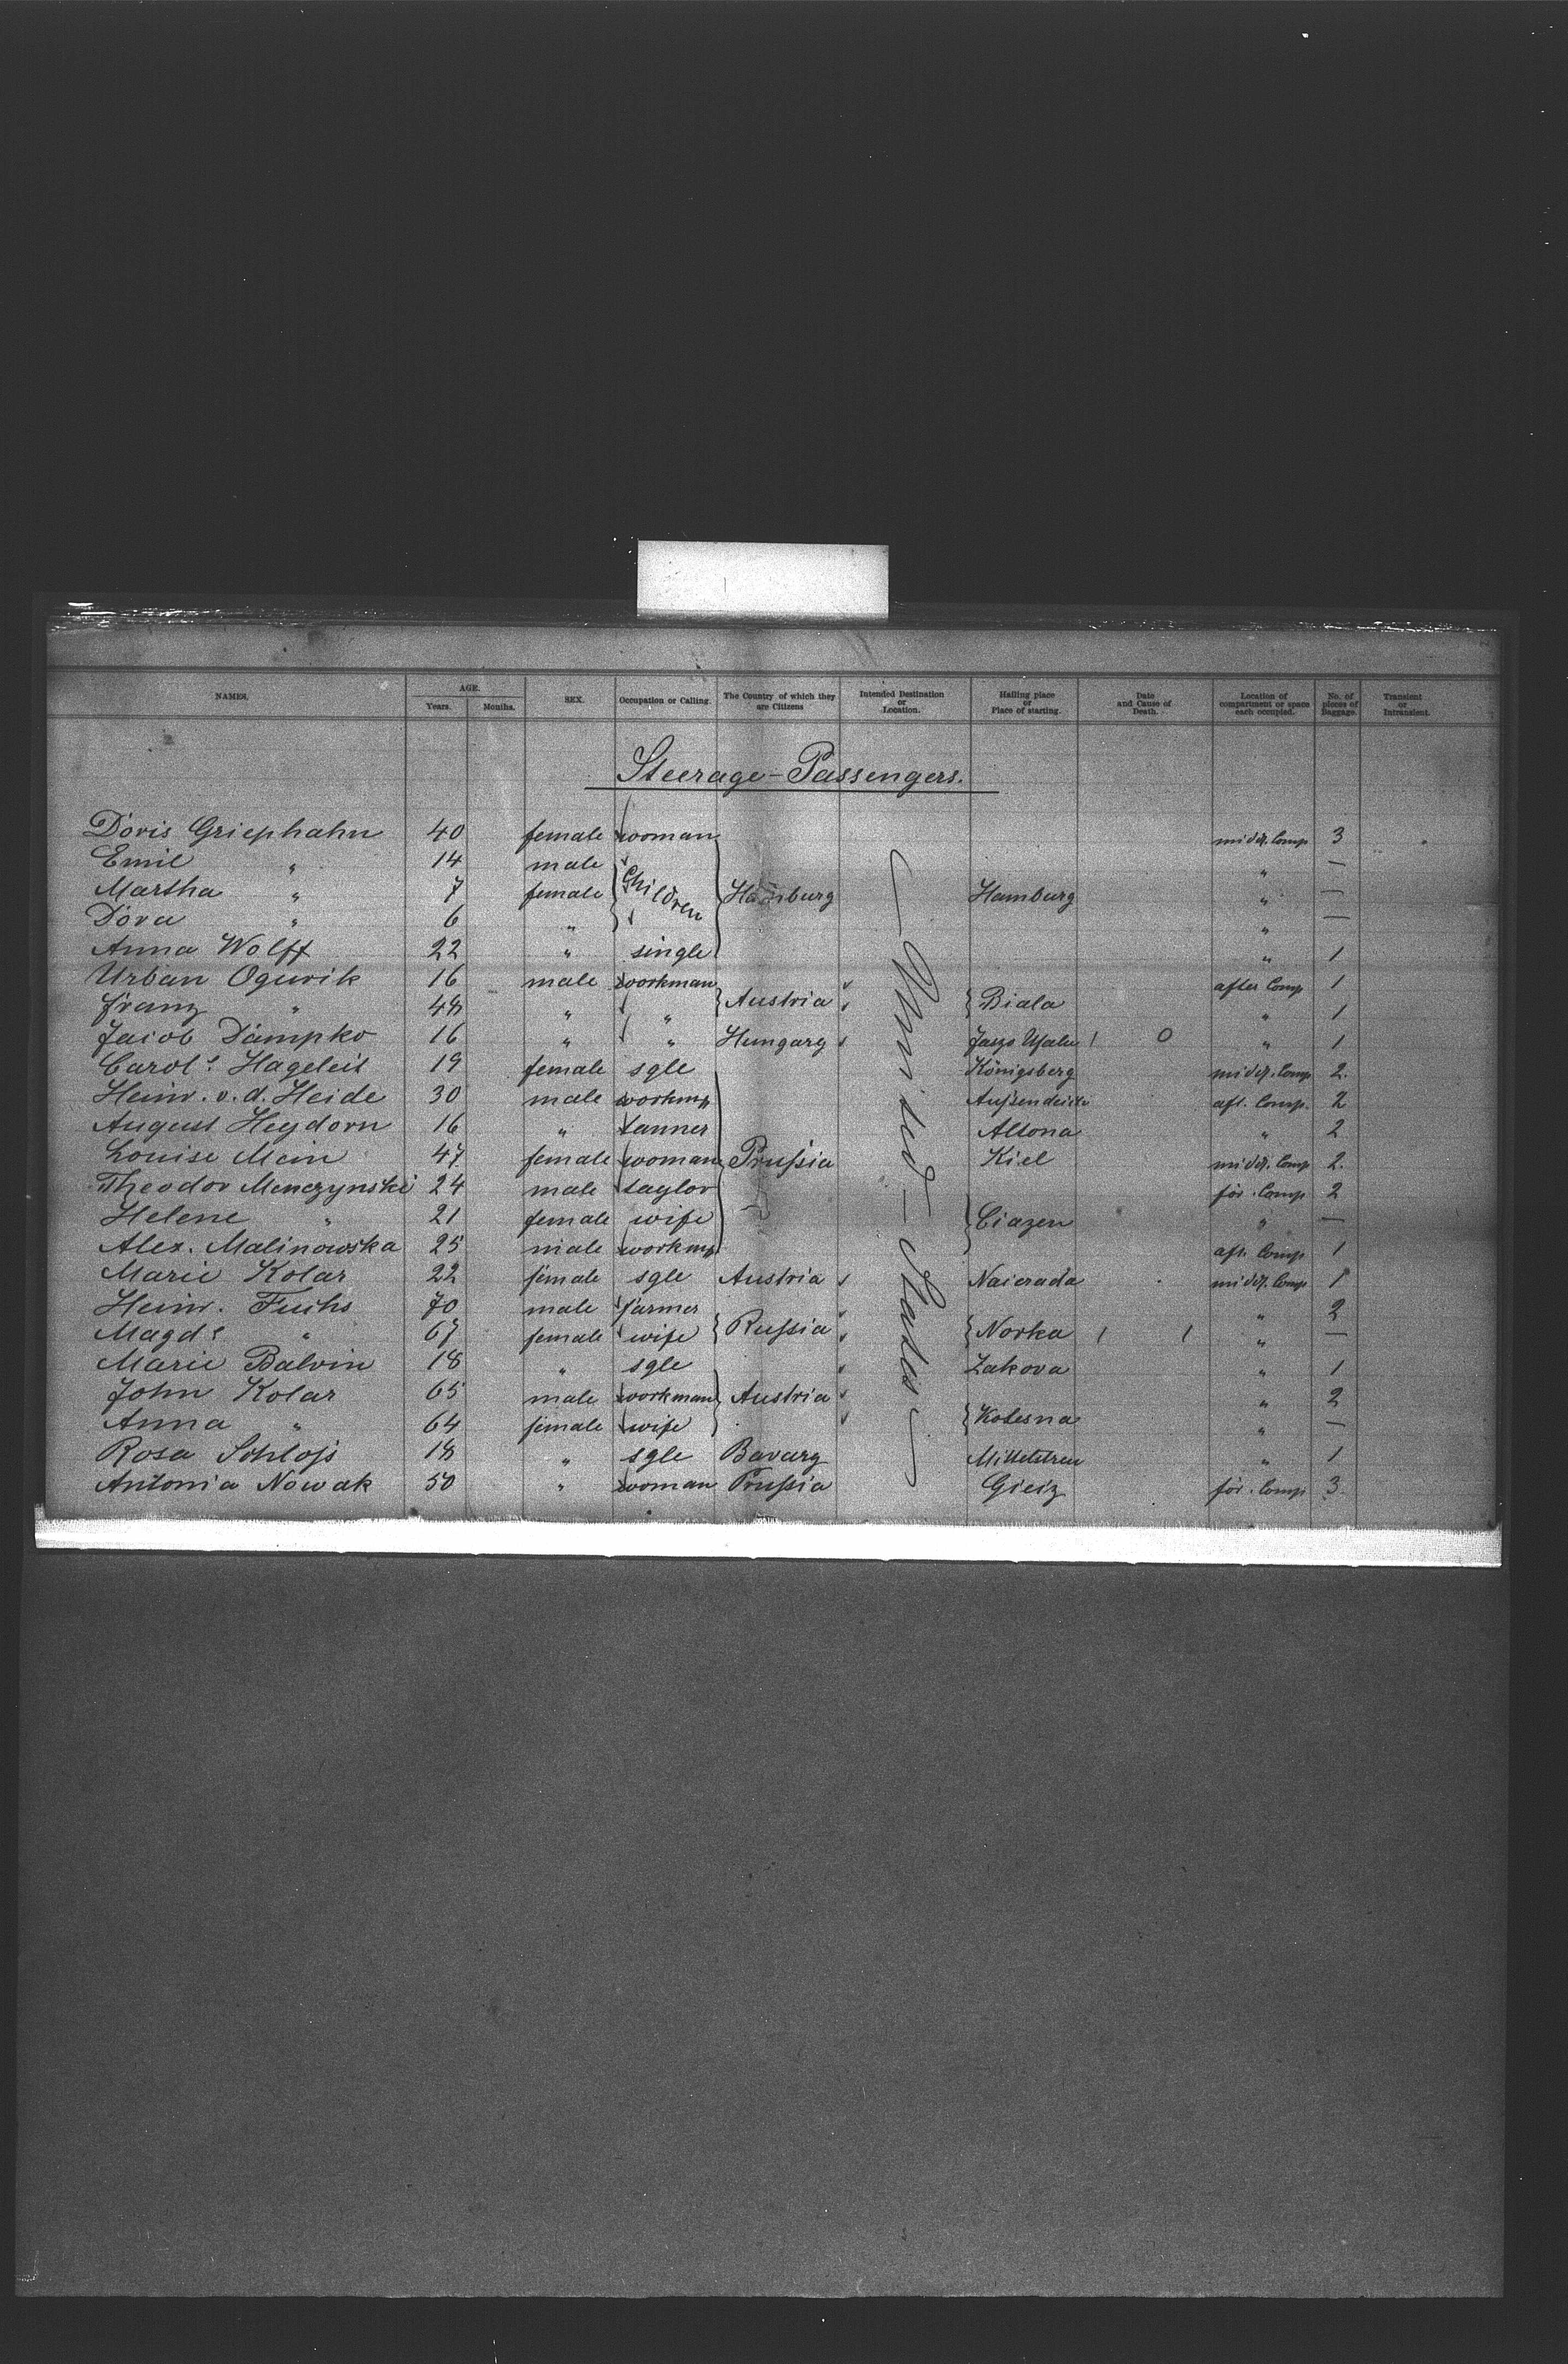 NAMES. AGE. Years. Months. SEX. Occupation or Calling. The Country of which they are Citizens Intended Destination or Location. Hailing place or Place of starting. Date and Cause of Death. Location of compartment or space each occupied. No. of pieces of Baggage. Transient or Intransient.
Steerage-Passengers.
Doris Griephahn 40 female woman midd. Comp 3
Emil " 14 male Children " —
Martha " 7 female Hamburg Hamburg " —
Dora " 6 " " —
Anna Wolff 22 " single " 1
Urban Oguvik 16 male workman after Comp 1
Franz " 48 " " Austria Biala " 1
Jacob Dampko 16 " " Hungary Jaszo 0 " 1
Carol^e Hageleit 19 female sgle Königsberg midd. Comp 2.
Heinr. v. d. Heide 30 male workmp aft. Comp. 2
August Heydorn 16 " tanner Altona " 2
Louise Mein 47 female woman Prußia Kiel midd. Comp 2.
Theodor Menczynski 24 male taylor for. Comp 2
Helene " 21 female wife Ciazen " —
Alex. Malinowska 25 male workmp aft. Comp 1
Marie Kolar 22 female sgle Austria Naierada midd. Comp 1
Heinr. Fuchs 70 male farmer " 2
Magd^e " 67 female wife Rußia Norka 1 " —
Marie Balvin 18 " sgle Zakova " 1
John Kolar 65 male workman Austria " 2
Anna " 64 female wife Kotesna " —
Rosa Schloß 18 " sgle Bavary " 1
Antonia Nowak 50 " woman Prußia Gieiz for. Comp 3
— United – States —